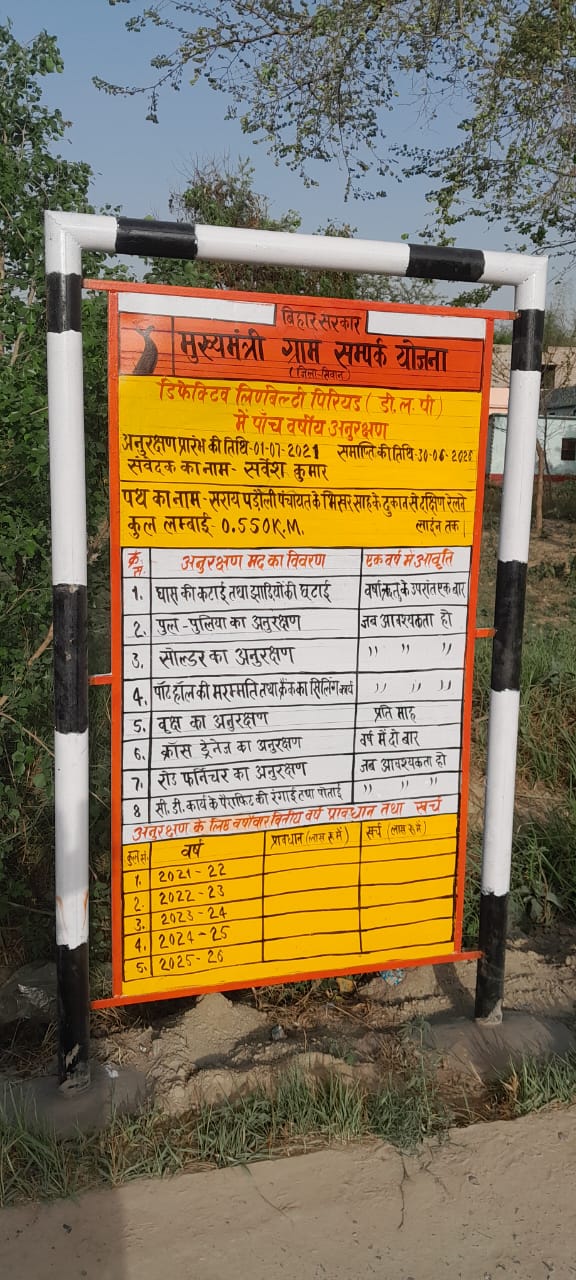 बिहार सरकार
मुख्यमंत्री ग्राम सम्पर्क योजना
(जिला-सिवान)
डिफेक्टिव लिएबिल्टी पिरियड (डी.ल.पी)
में पाँच वर्षीय अनुरक्षण
अनुरक्षण प्रारंभ की तिथि-01-07-2021 समाप्ति की तिथि-30-06-2026
संवेदक का नाम- सर्वेश कुमार
पथ का नाम - सराय पडौली पंचायत के मिसर साह के दुकान से दक्षिण रेलवे
कुल लम्बाई- 0.550K.M. लाईन तक।
क्र. स. अनुरक्षण मद का विवरण एक वर्ष मे आवृति
1. घास की कटाई तथा झाडियों की छटाई वर्षा ऋतु के उपरांत एक बार
2. पुल-पुलिया का अनुरक्षण जब आवश्यकता हो
3. सोल्डर का अनुरक्षण " " "
4. पॉट हॉल की मरम्मति तथा क्रैक का सिलिंग कार्य " " "
5. वृक्ष का अनुरक्षण प्रति माह
6. क्रॉस ड्रेनेज का अनुरक्षण वर्ष में दो बार
7. रोड फर्निचर का अनुरक्षण जब आवश्यकता हो
8 सी.डी. कार्य के पैराफिट की रंगाई तथा पोताई " " "
अनुरक्षण के लिए वर्षावार वितीय वर्ष प्रावधान तथा खर्च
वर्ष प्रावधान (लाख रू में) खर्च (लाख रू में)
1. 2021-22
2. 2022-23
3. 2023-24
4. 2024-25
5. 2025-26